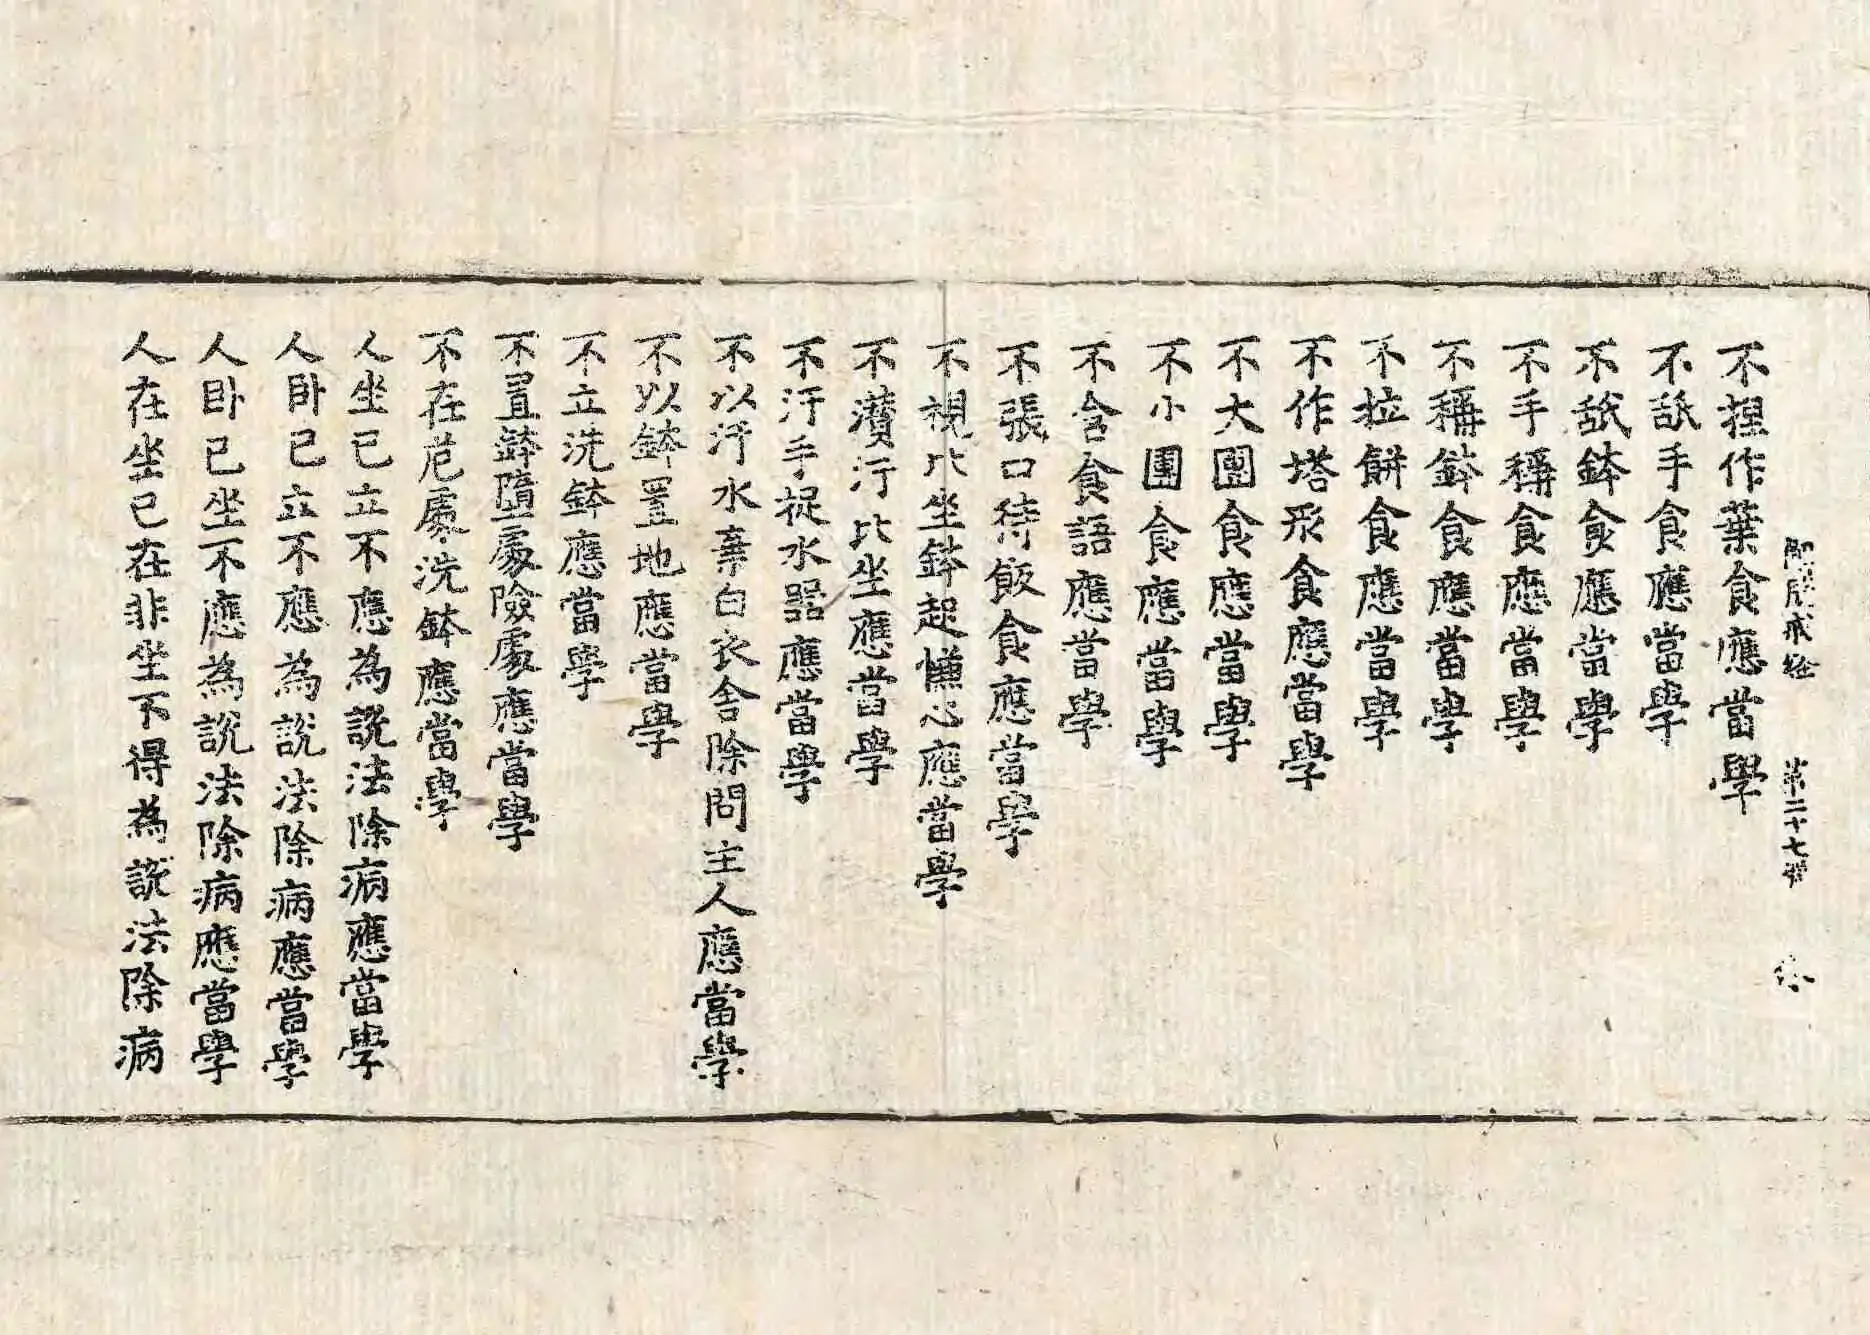 解脫戒經 第二十七張
不捏作葉食應當學
不舐手食應當學
不舐鉢食應當學
不手稱食應當學
不稱鉢食應當學
不拉餅食應當學
不作塔形食應當學
不大團食應當學
不小團食應當學
不含食語應當學
不張口待飯食應當學
不視比坐鉢起慊心應當學
不灒汙比坐應當學
不汙手捉水器應當學
不以汙水棄白衣舍除問主人應當學
不以鉢置地應當學
不立洗鉢應當學
不置鉢墮處險處應當學
不在危處洗鉢應當學
人坐已立不應為說法除病應當學
人卧已立不應為說法除病應當學
人卧已坐不應為說法除病應當學
人在坐已在非坐不得為說法除病